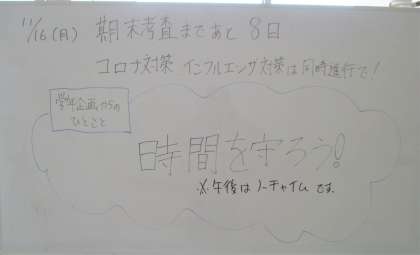 11/16(月) 期末考査まであと 8日
コロナ対策 インフルエンザ対策は同時進行で!
学年企画からの
ひとこと
時間を守ろう!
※午後はノーチャイムです。